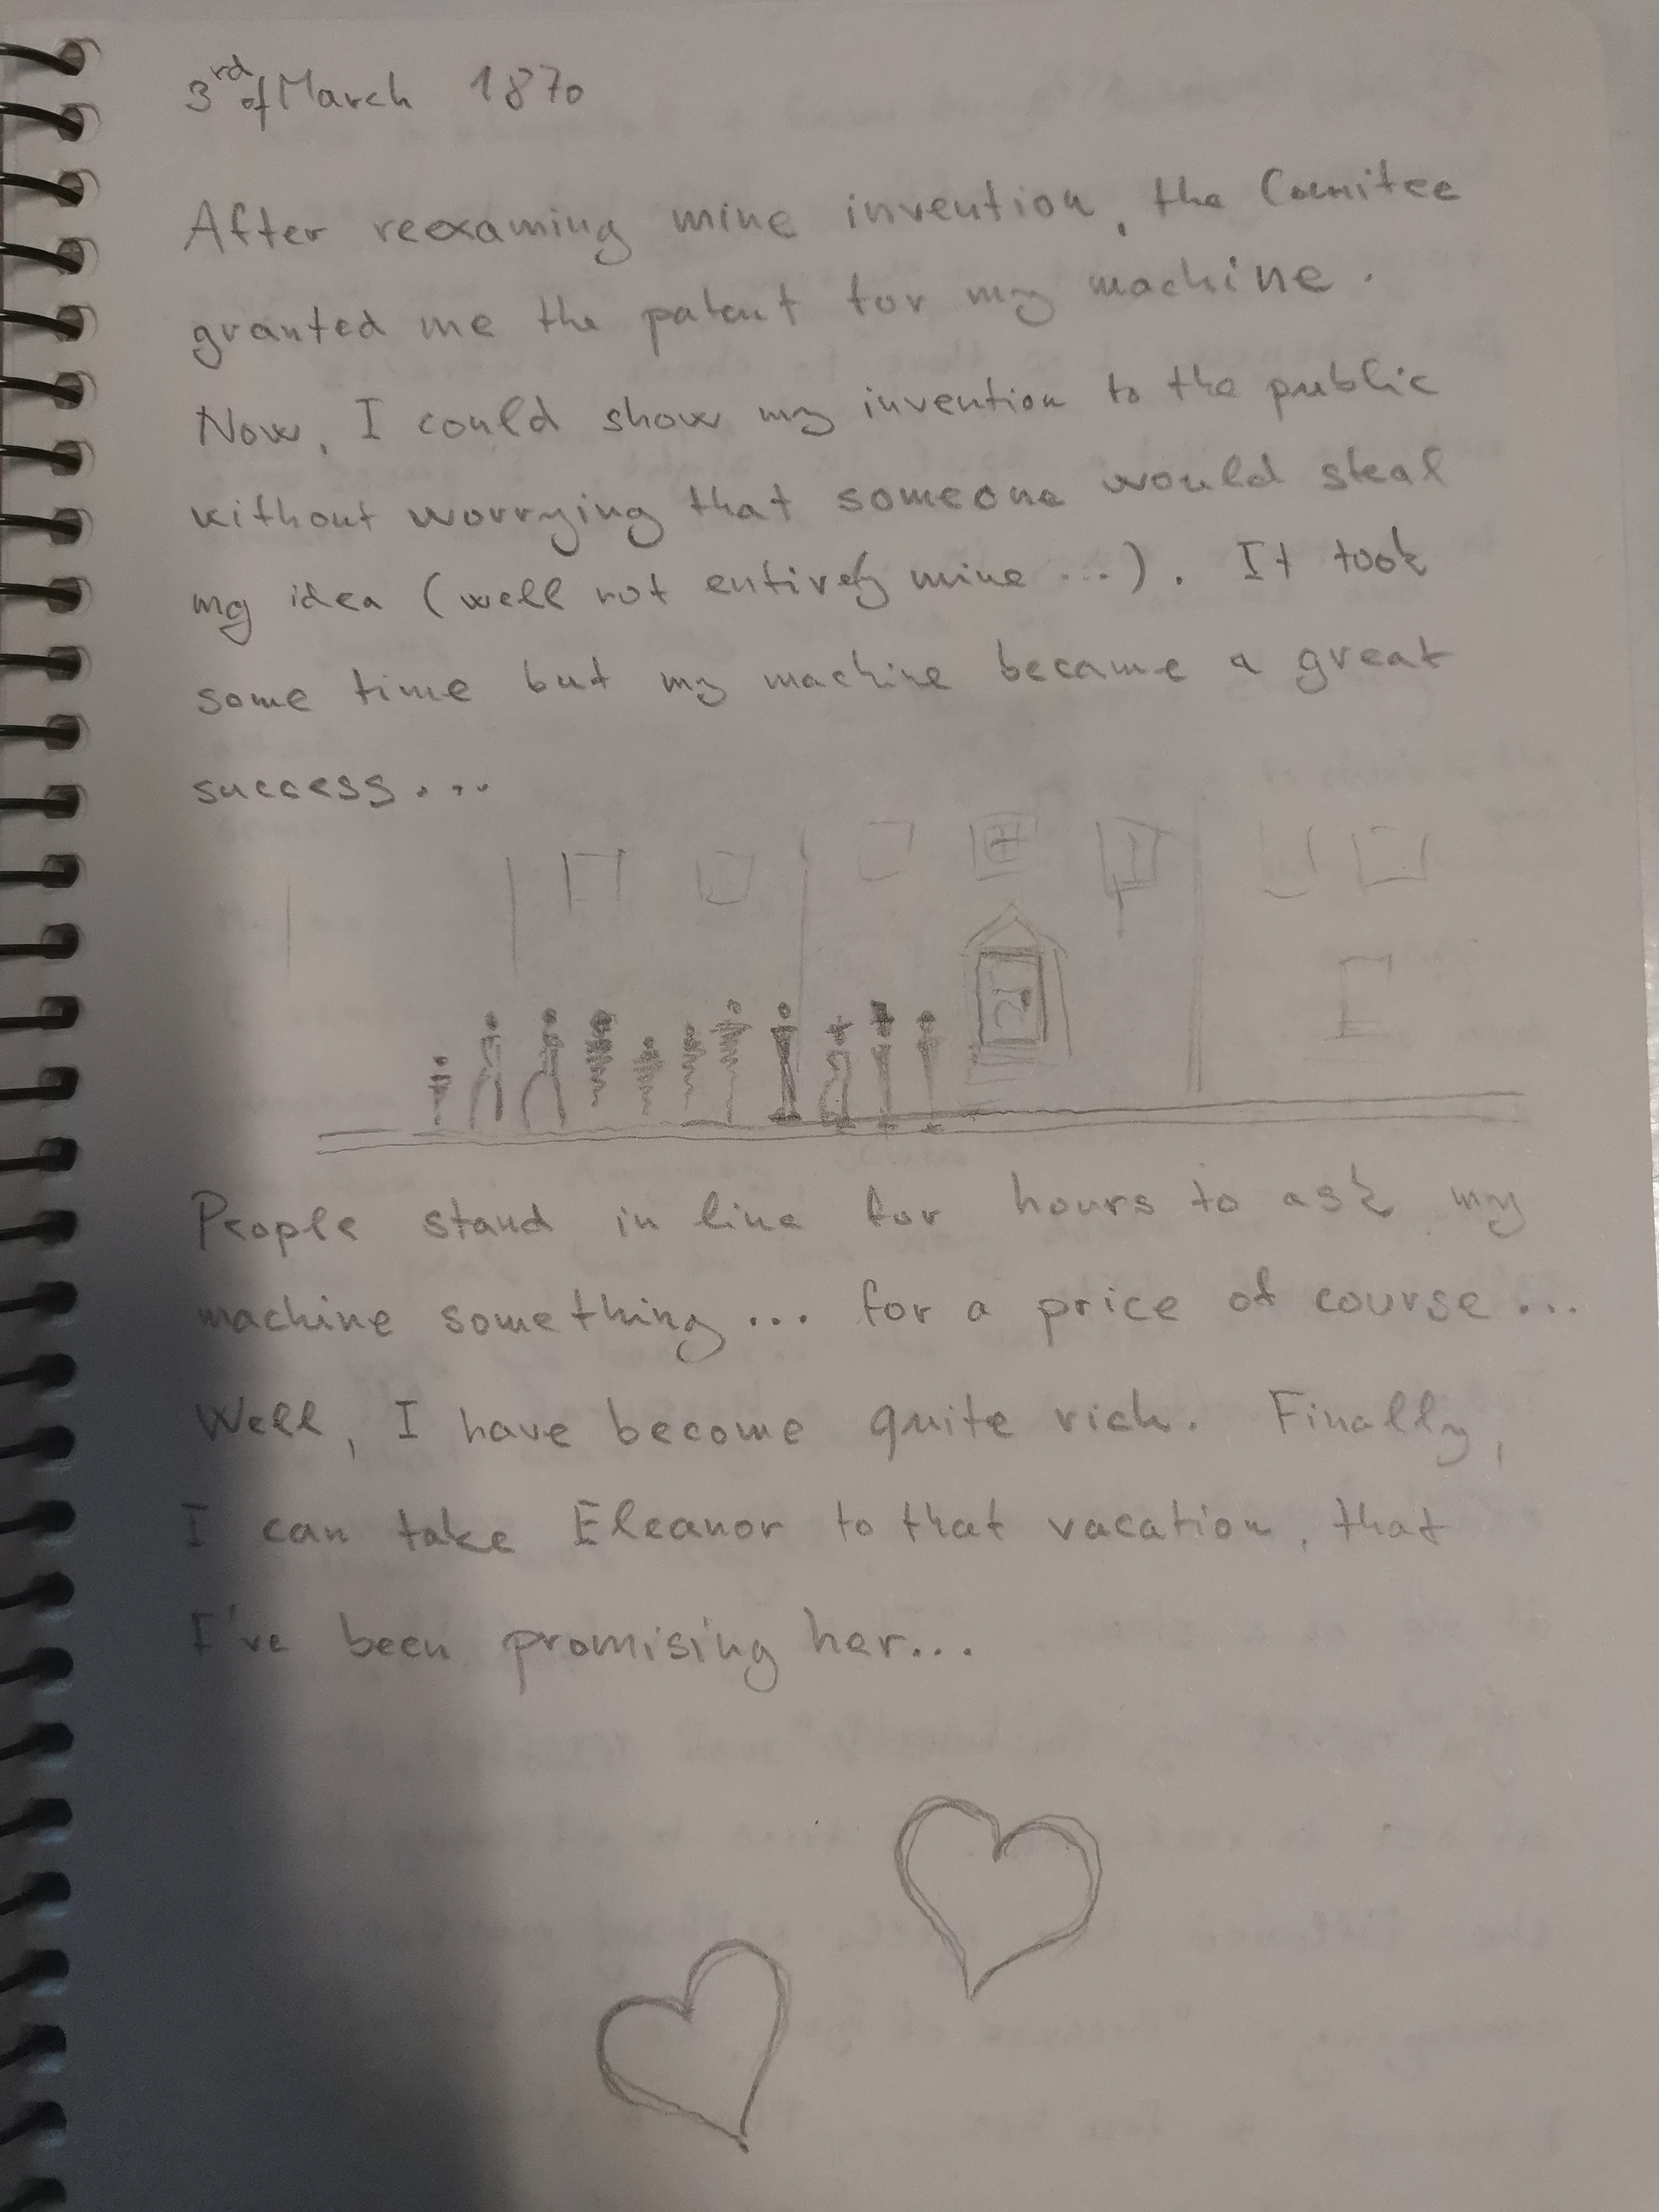 3rd of March 1870
After reexaming mine invention, the Comitee
granted me the patent for my machine.
Now, I could show my invention to the public
without worrying that someone would steal
my idea (well not entirely mine ...). It took
some time but my machine became a great
success....
People stand in line for hours to ask my
machine something... for a price of course...
Well, I have become quite rich. Finally,
I can take Eleanor to that vacation, that
I've been promising her...